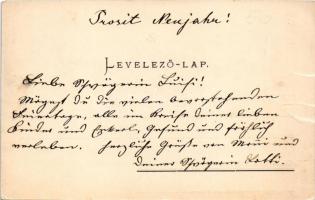 Prosit Neujahr!
LEVELEZŐ-LAP.
Liebe Schwägerin Luisi!
Mögest du die vielen bevorstehenden
alle im Kreise deiner lieben
Kinder und Enkerl, Gesund und fröhlich
verleben. Herzliche Grüße von Mari und
deiner Schwägerin Lotti.